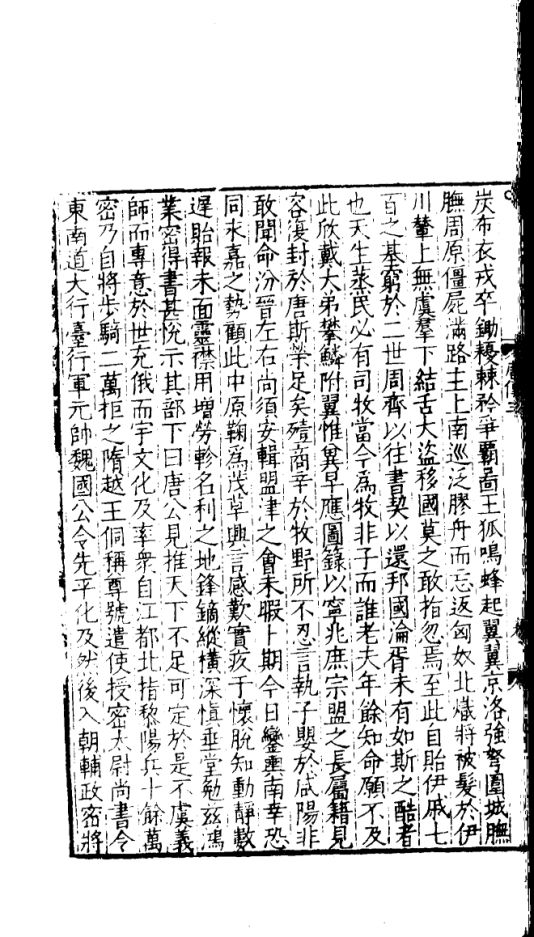 炭布衣戎卒鋤耰棘矜爭霸圖王狐鳴蜂起翼翼京洛強弩圍城膴
膴周原僵屍滿路主上南巡泛膠舟而忘返匈奴北熾將被髮於伊
川輦上無虞羣下結舌大盜移國莫之敢指忽焉至此自貽伊戚七
百之基窮於二世周齊以往書契以還邦國淪胥未有如斯之酷者
也天生蒸民必有司牧當今爲牧非子而誰老夫年餘知命願不及
此欣戴大弟攀鱗附翼惟兾早應圖籙以寧兆庶宗盟之長屬籍見
容復封於唐斯榮足矣殪商辛於牧野所不忍言執子嬰於咸陽非
敢聞命汾晉左右尚須安輯盟津之會未暇卜期今日鑾輿南幸恐
同永嘉之勢顧此中原鞠爲茂草興言感歎實疚于懷脫知動靜數
遲貽報未面靈襟用增勞軫名利之地鋒鏑縱橫深慎垂堂勉兹鴻
業密得書甚悅示其部下曰唐公見推天下不足可定於是不虞義
師而專意於世充俄而宇文化及率衆自江都北指黎陽兵十餘萬
密乃自將步騎二萬拒之隋越王侗稱尊號遣使授密太尉尚書令
東南道大行臺行軍元帥魏國公令先平化及然後入朝輔政密將